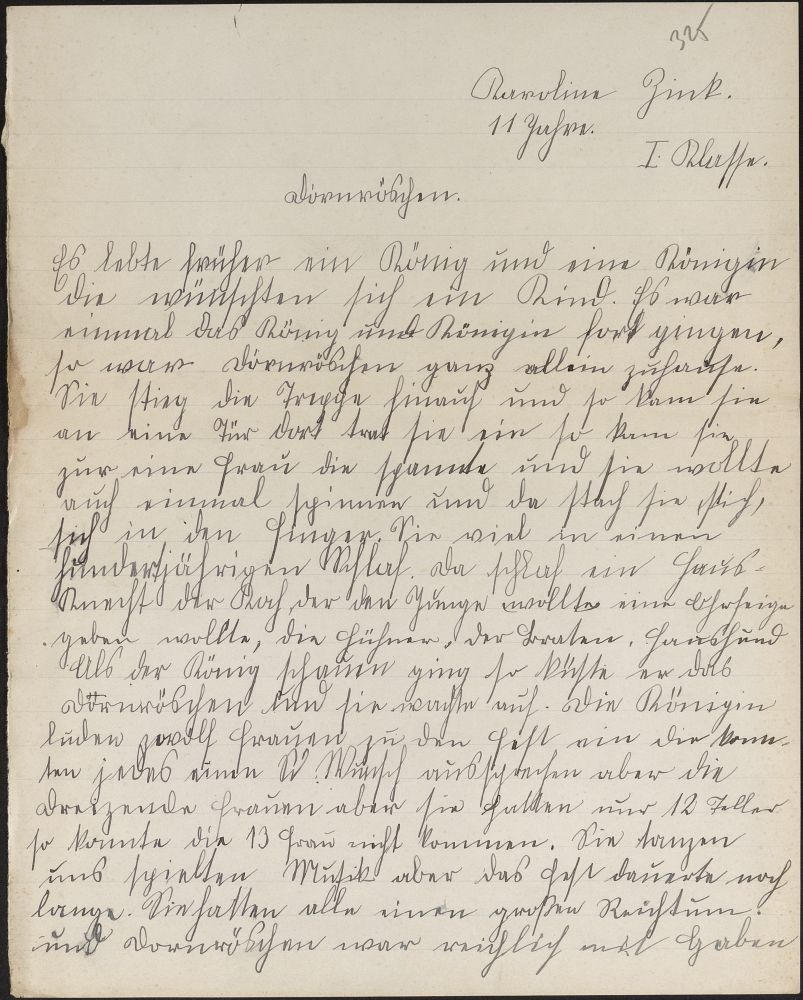 325
Karoline Zink.
11 Jahre.
I. Klasse.
Dornröschen.
Es lebte früher ein König und eine Königin
die wünschten sich ein Kind. Es war
einmal das König und Königin fort gingen,
so war Dörnröschen ganz allein zuhause.
Sie stieg die Treppe hinauf und so kam sie
an eine Tür dort trat sie ein so kam sie
zur eine Frau die spannte und sie wollte
auch einmal spinnen und da stach sie stich,
sich in den Finger. Sie viel in einen
hundertjährigen Schlaf. Da schlaf ein Haus-
Knecht der Koch, der den Junge wollte eine Ohrfeige
geben wollte, die Hühner, der Braten, Haushund
Als der König schauen ging so küste er das
Dörnröschen und sie wachte auf. Die Königin
luden zwölf Frauen zu den Fest ein die konn-
ten jedes einen W. Wunsch aussprechen aber die
Dreizende Frauen aber sie hatten nur 12 Teller
so konnte die 13 Frau nicht kommen. Sie tanzen
uns spielten Musik aber das Fest dauerte noch
lange. Sie hatten alle einen großen Reichtum.
und Dornröschen war reichlich mit Gaben